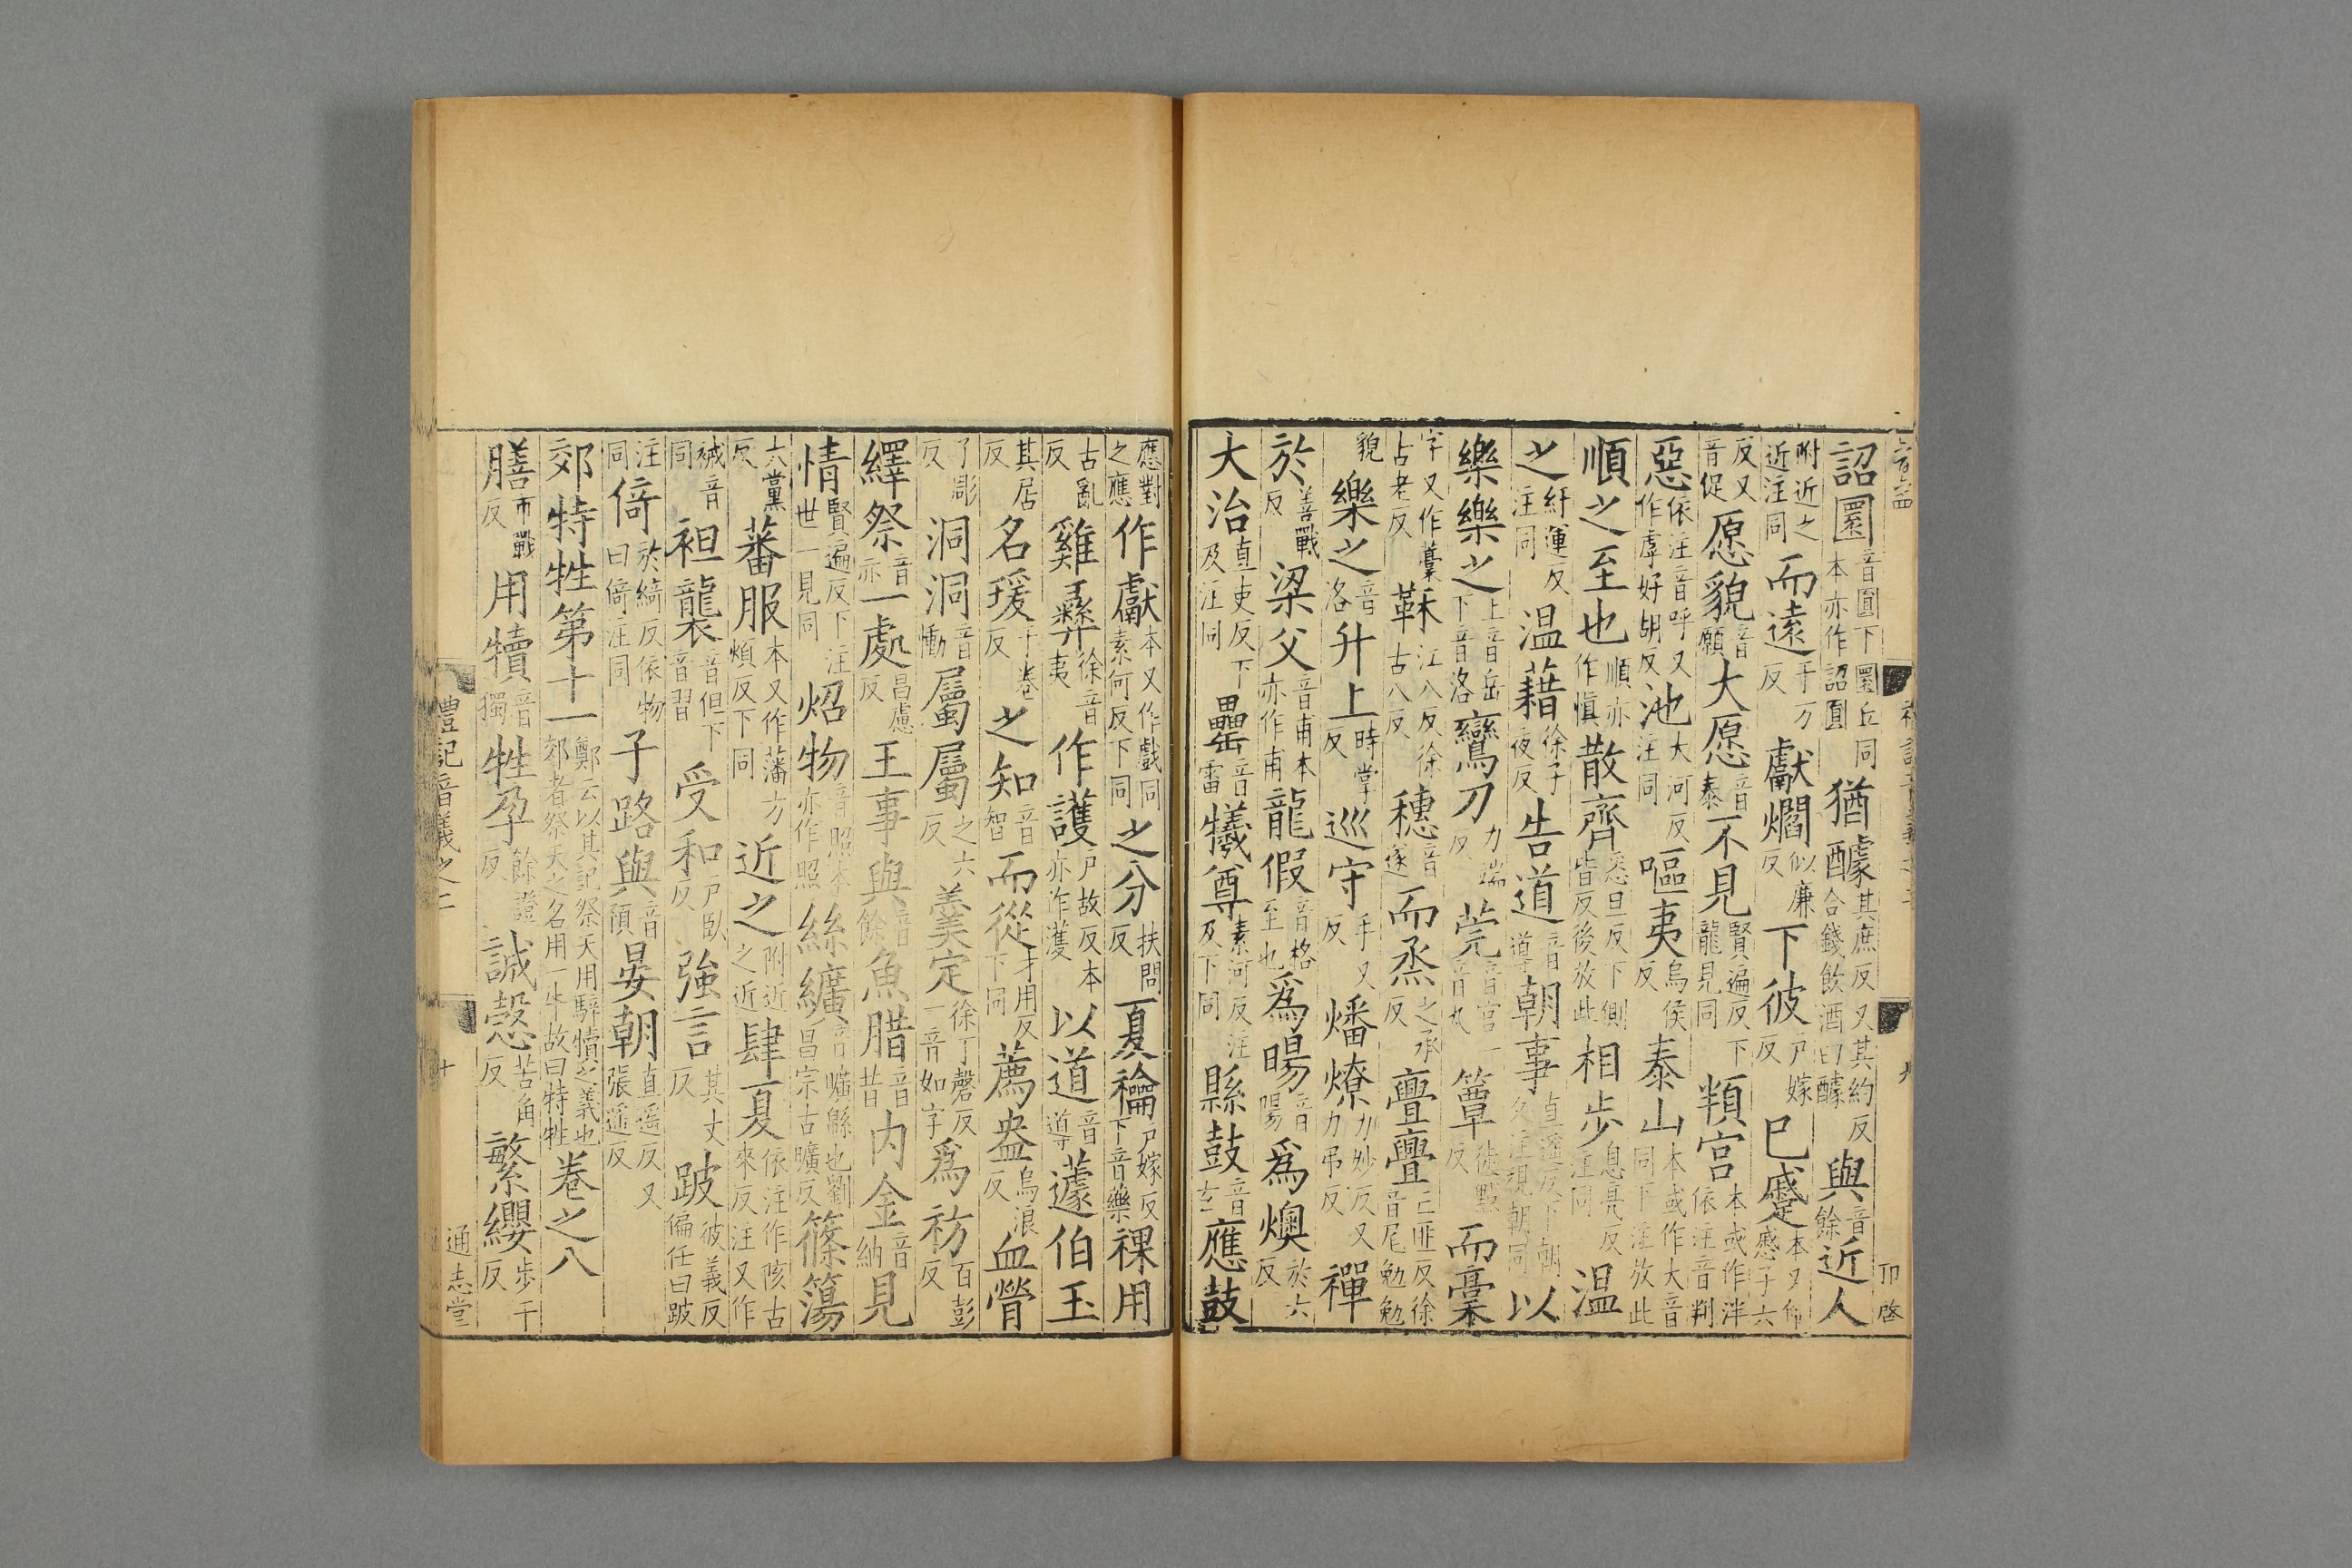 詔圜音圓下圜丘同本亦作詔圓猶醵其庶反又其約反合錢飲酒曰醵與音餘近人
附近之近注同而遠于万反獻爓似廉反下彼戸嫁反巳蹙本又作慼子六
反又音促愿貌音願大愿音泰不見賢遍反下龍見同頖宮本或作泮依注音判
惡依注音呼又作虖好胡反池大河反注同嘔夷烏侯反泰山本或作大音同下注放此
順之至也順亦作慎散齊悉旦反下側皆反後放此相步息亮反注同溫
之紆運反注同溫藉徐子夜反告道音導朝事直遥反下朝同以
樂樂之上音岳下音洛鸞刀力端反莞音官一音丸簟徒點反而稾
字又作藁古老反鞂江八反徐古八反穗音遂而烝之承反亹亹亡匪反徐音尾勉勉
貌樂之音洛升上時掌反巡守手又反燔燎力妙反又力弔反禪
於善戰反梁父音甫本亦作甫龍假音格至也爲暘音陽爲燠於六反
大治直吏反下及注同罍音雷犧尊素河反注及下同縣鼓音玄應鼓
應對之應作獻本又作戲同素何反下同之分扶問反夏禴戸嫁反下音藥祼用
古亂反雞彝徐音夷作護戸故反本亦作濩以道音導蘧伯玉
其居反名瑗于卷反之知音智而從才用反下同薦盎烏浪反血膋
了彫反洞洞音慟屬屬之六反羹定徐丁磬反一音如字爲祊百彭反
繹祭音亦一處昌慮反王事與音餘魚腊音昔内金音納見
情賢遍反下注世一見同炤物音照本亦作照絲纊音曠緜也劉昌宗古曠反篠簜
大黨反蕃服本又作藩方煩反下同近之附近之近肆夏依注作陔古來反注又作
裓音同袒襲音但下音習受和戸臥反強言其丈反跛彼義反偏任曰跛
注同倚於綺反依物曰倚注同子路與音預晏朝直遥反又張遥反
郊特牲第十一鄭云以其記祭天用騂犢之義也郊者祭天之名用一牛故曰特牲卷之八
膳市戰反用犢音獨牲孕餘證反誠慤苦角反繁纓步干反
禮記音義之二
十
通志堂